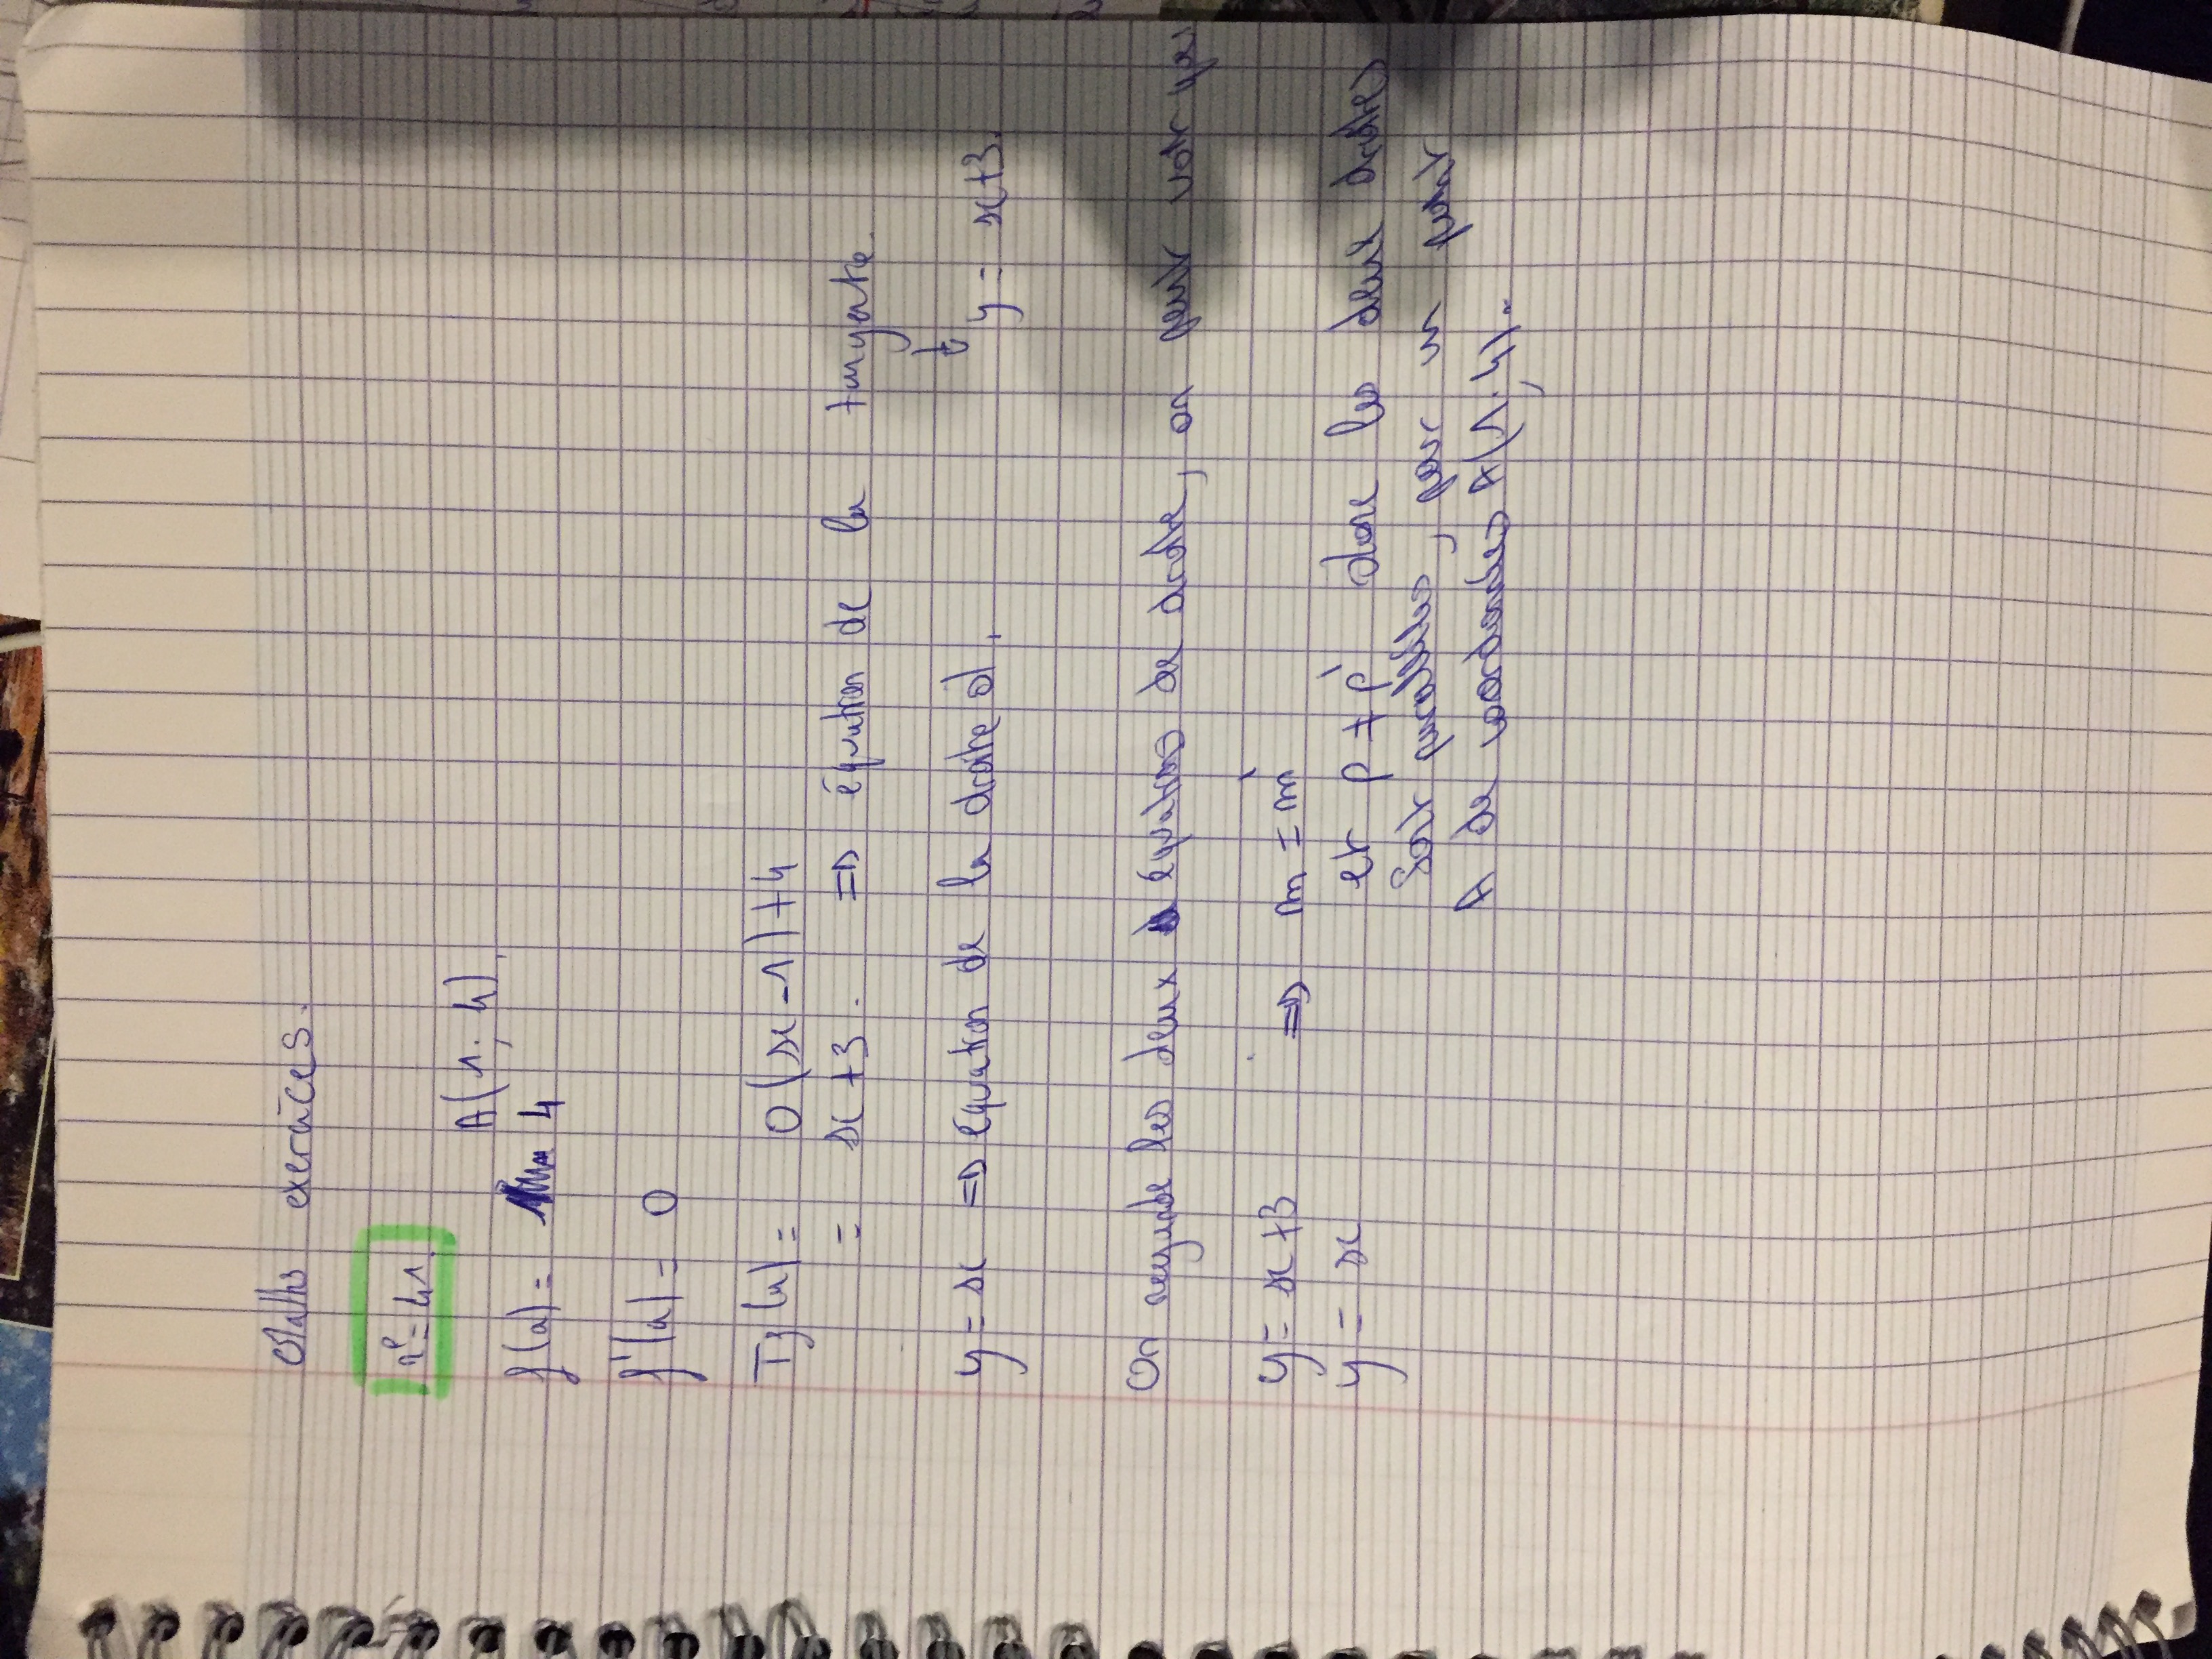 Maths exercices.
n°= 41.
A(1; 4).
f(a) = 4
f'(a) = 0
T3(a) = 0(x-1)+4
= x+3. => équation de la tangente.
↓
y = x => équation de la droite d. y = x+3.
On regarde les deux équations de droite, on peut voir que
y = x+3 => m = m'
y = x et p ≠ p' donc les deux droites
sont parallèles, pour un point
A de coordonnées A(1; 4).